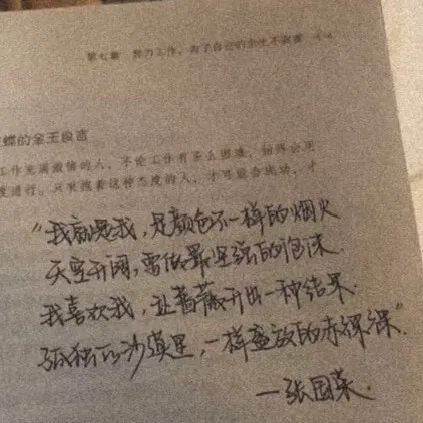 第七章 努力工作，为了自己的余生不
蝶的金玉良言
工作充满激情的人，不论工作有多么困难，始终会
度进行。只有抱着这种态度的人，才可能会成功，才
“我就是我，是颜色不一样的烟火
天空开阔，要做最坚强的泡沫.
我喜欢我，让蔷薇开出一种结果.
孤独的沙漠里，一样盛放的赤裸裸”.
—张国荣.